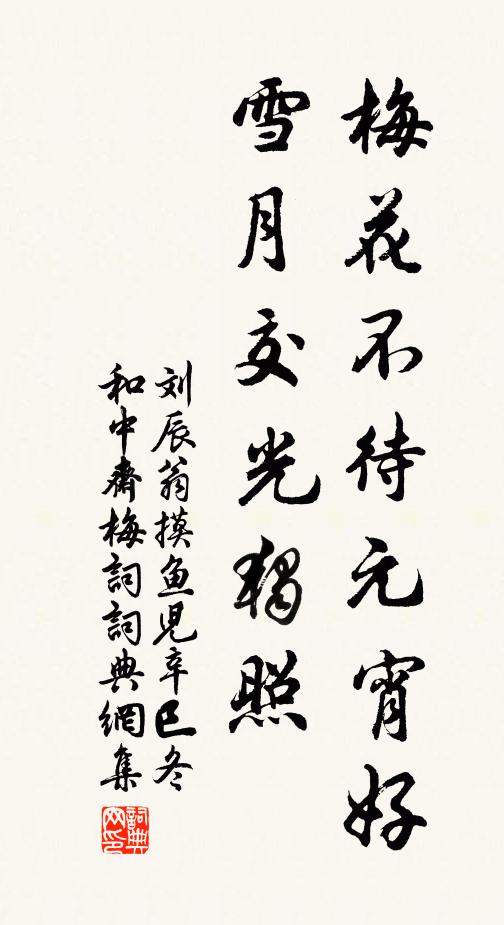 梅花不待元宵好
雪月交光獨照
刘辰翁摸鱼児辛巳冬
和中齋梅詞詞典網集
詞典
网印